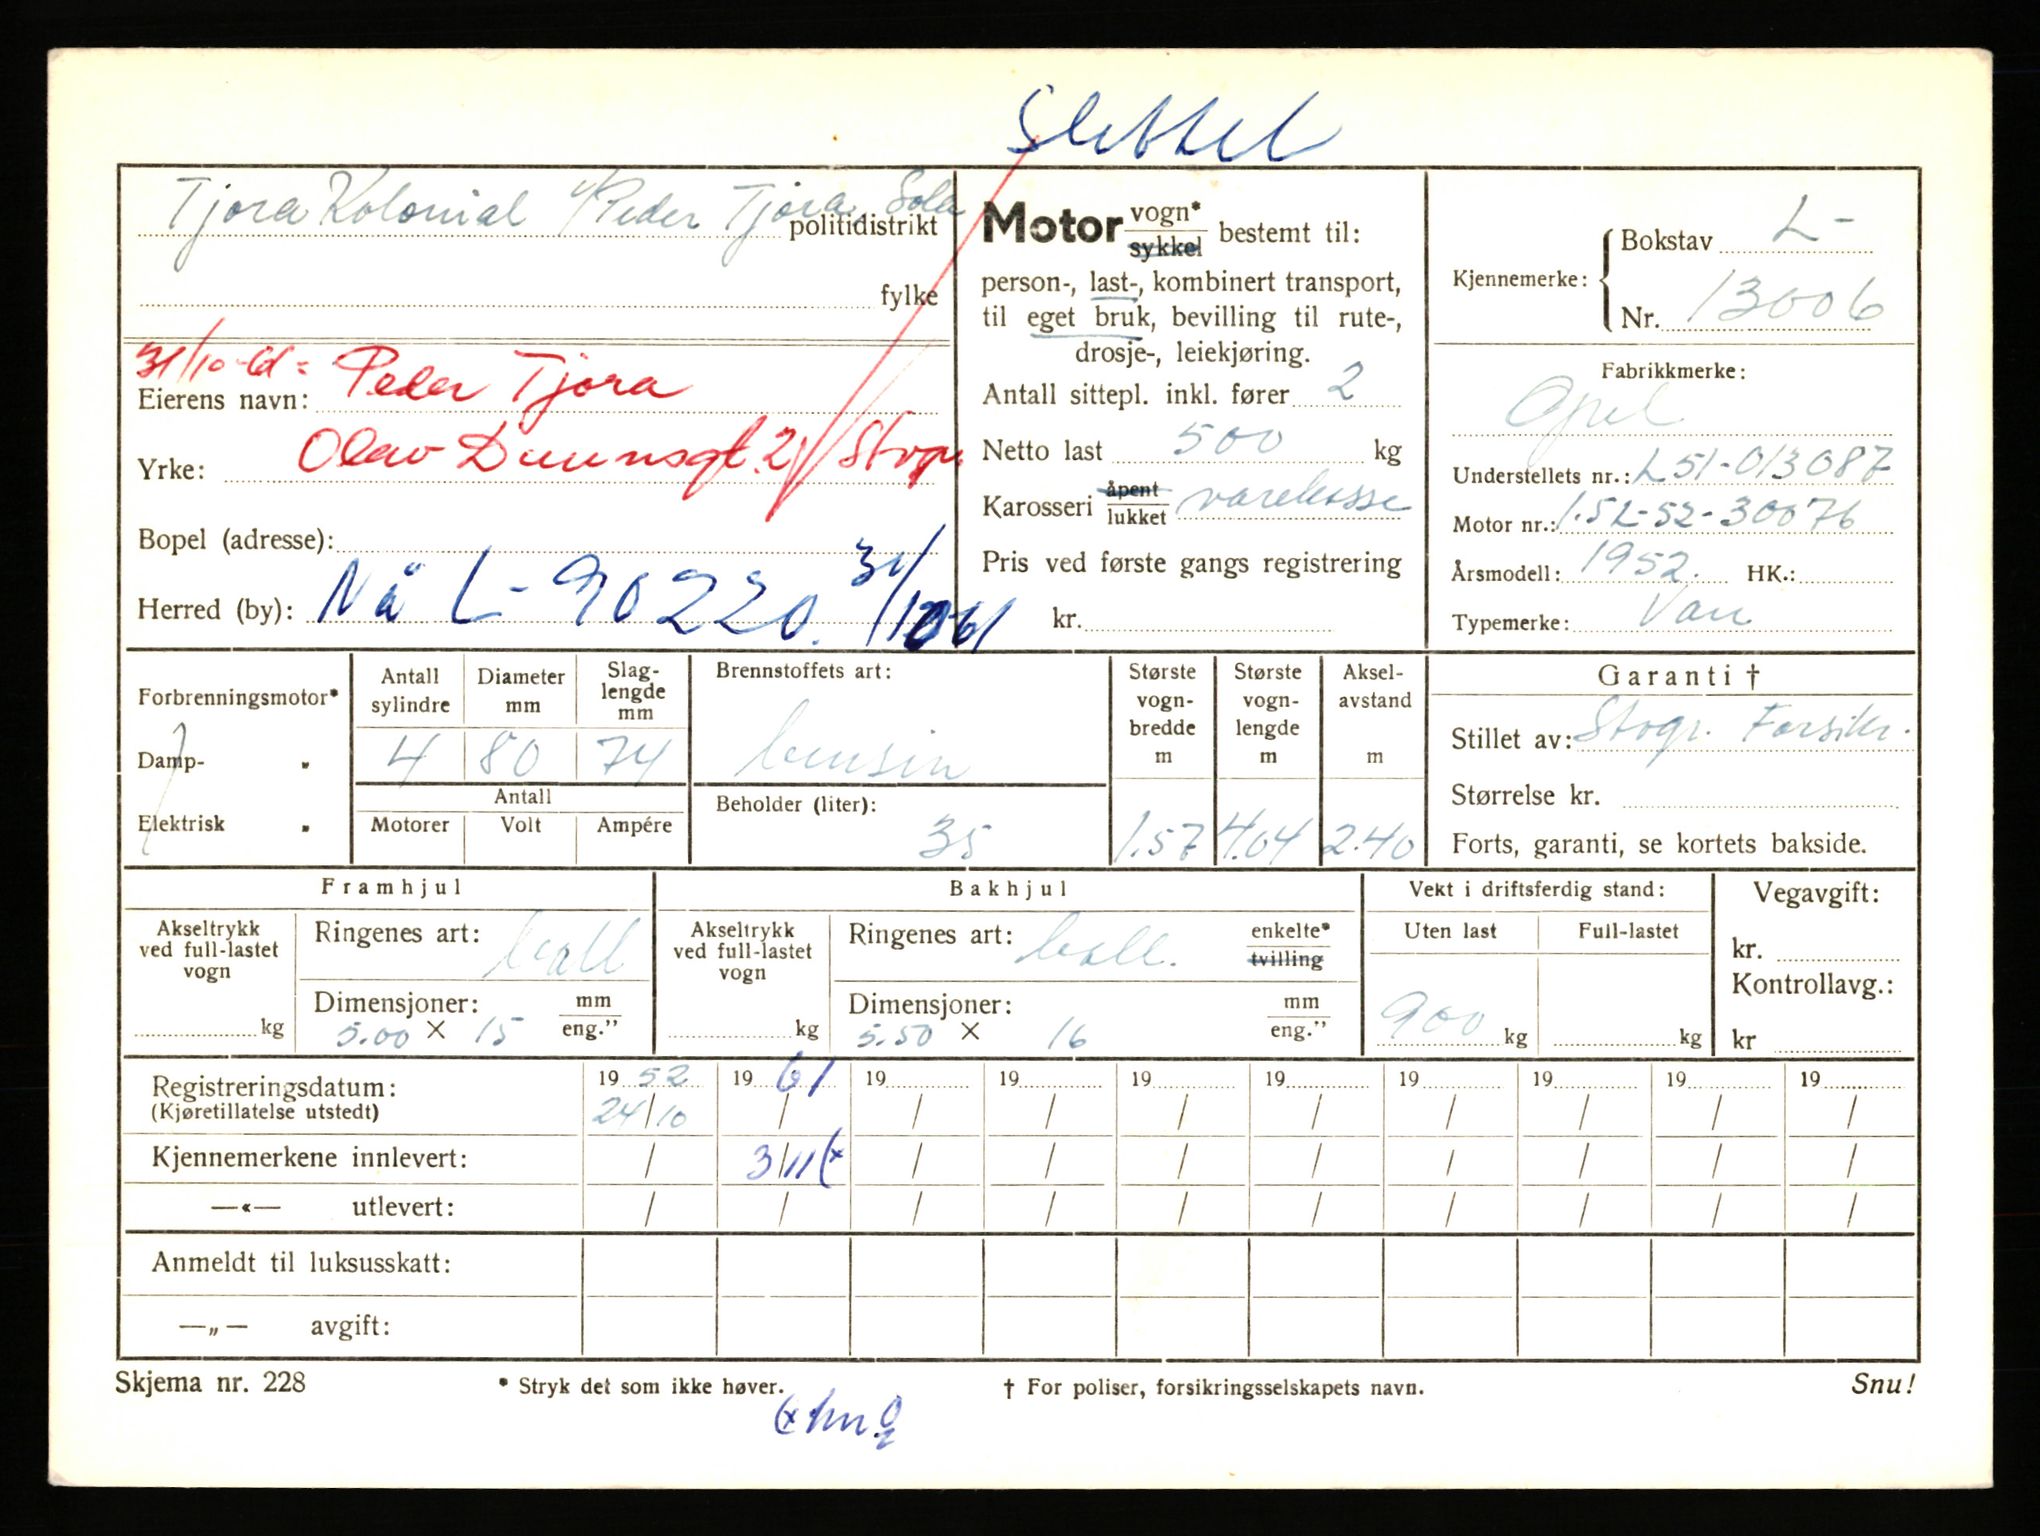 Slettet
Tjora Kolonial v/Peder Tjora, Sola
politidistrikt
fylke
31/10-61 = Peder Tjora
Eierens navn:
Olav Duunsgt. 2, Stvgr.
Yrke:
Bopel (adresse):
Herred (by): Nå L-90220. 31/10-61
Motor vogn* sykkel bestemt til:
person-, last-, kombinert transport,
til eget bruk, bevilling til rute-,
drosje-, leiekjøring.
Antall sittepl. inkl. fører 2
Netto last 500 kg
Karosseri åpent lukket varekasse
Pris ved første gangs registrering
kr.
Kjennemerke: Bokstav L-
Nr. 13006
Fabrikkmerke:
Opel
Understellets nr.: L51-013087
Motor nr.: 1.5L-52-30076
Årsmodell: 1952. HK.:
Typemerke: Van
Forbrenningsmotor*
Damp- "
Elektrisk "
Antall sylindre Diameter mm Slag-lengde mm
4 80 74
Antall
Motorer Volt Ampére
Brennstoffets art:
bensin
Beholder (liter):
35
Største vogn-bredde m
1.57
Største vogn-lengde m
4.04
Aksel-avstand m
2.40
Garanti †
Stillet av: Stvgr. Forsikr.
Størrelse kr.
Forts, garanti, se kortets bakside.
Framhjul
Akseltrykk ved full-lastet vogn
kg
Ringenes art: ball
Dimensjoner: mm eng."
5.00 × 15
Bakhjul
Akseltrykk ved full-lastet vogn
kg
Ringenes art: ball. enkelte* tvilling
Dimensjoner: mm eng."
5.50 × 16
Vekt i driftsferdig stand:
Uten last Full-lastet
900 kg kg
Vegavgift:
kr.
Kontrollavg.:
kr
Registreringsdatum: 19 52 19 61 19 19 19 19 19 19 19 19
(Kjøretillatelse utstedt) 24/10 / / / / / / / / /
Kjennemerkene innlevert: / 3/11 (x / / / / / / / /
—«— utlevert: / / / / / / / / / /
Anmeldt til luksusskatt:
—„— avgift:
Skjema nr. 228 * Stryk det som ikke høver. † For poliser, forsikringsselskapets navn. Snu!